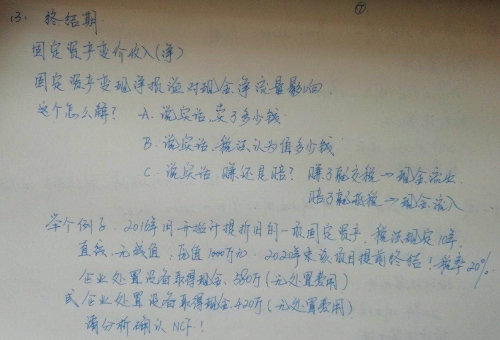 ⑦
(3) 终结期
固定资产变价收入(净)
固定资产变现净损溢对现金净流量影响.
这个怎么解? A. 说实话,卖了多少钱
B. 说实话,税法认为值多少钱
C. 说实话,赚还是赔? 赚了就交税→现金流出
赔了就抵税→现金流入
举个例子,2016年开始计提折旧的一项固定资产,税法规定10年,
直线,无残值,原值1000万元,2020年末该项目提前终结!税率20%
企业处置设备取得现金580万(无处置费用)
或企业处置设备取得现金420万(无处置费用)
请分析确认NCF!